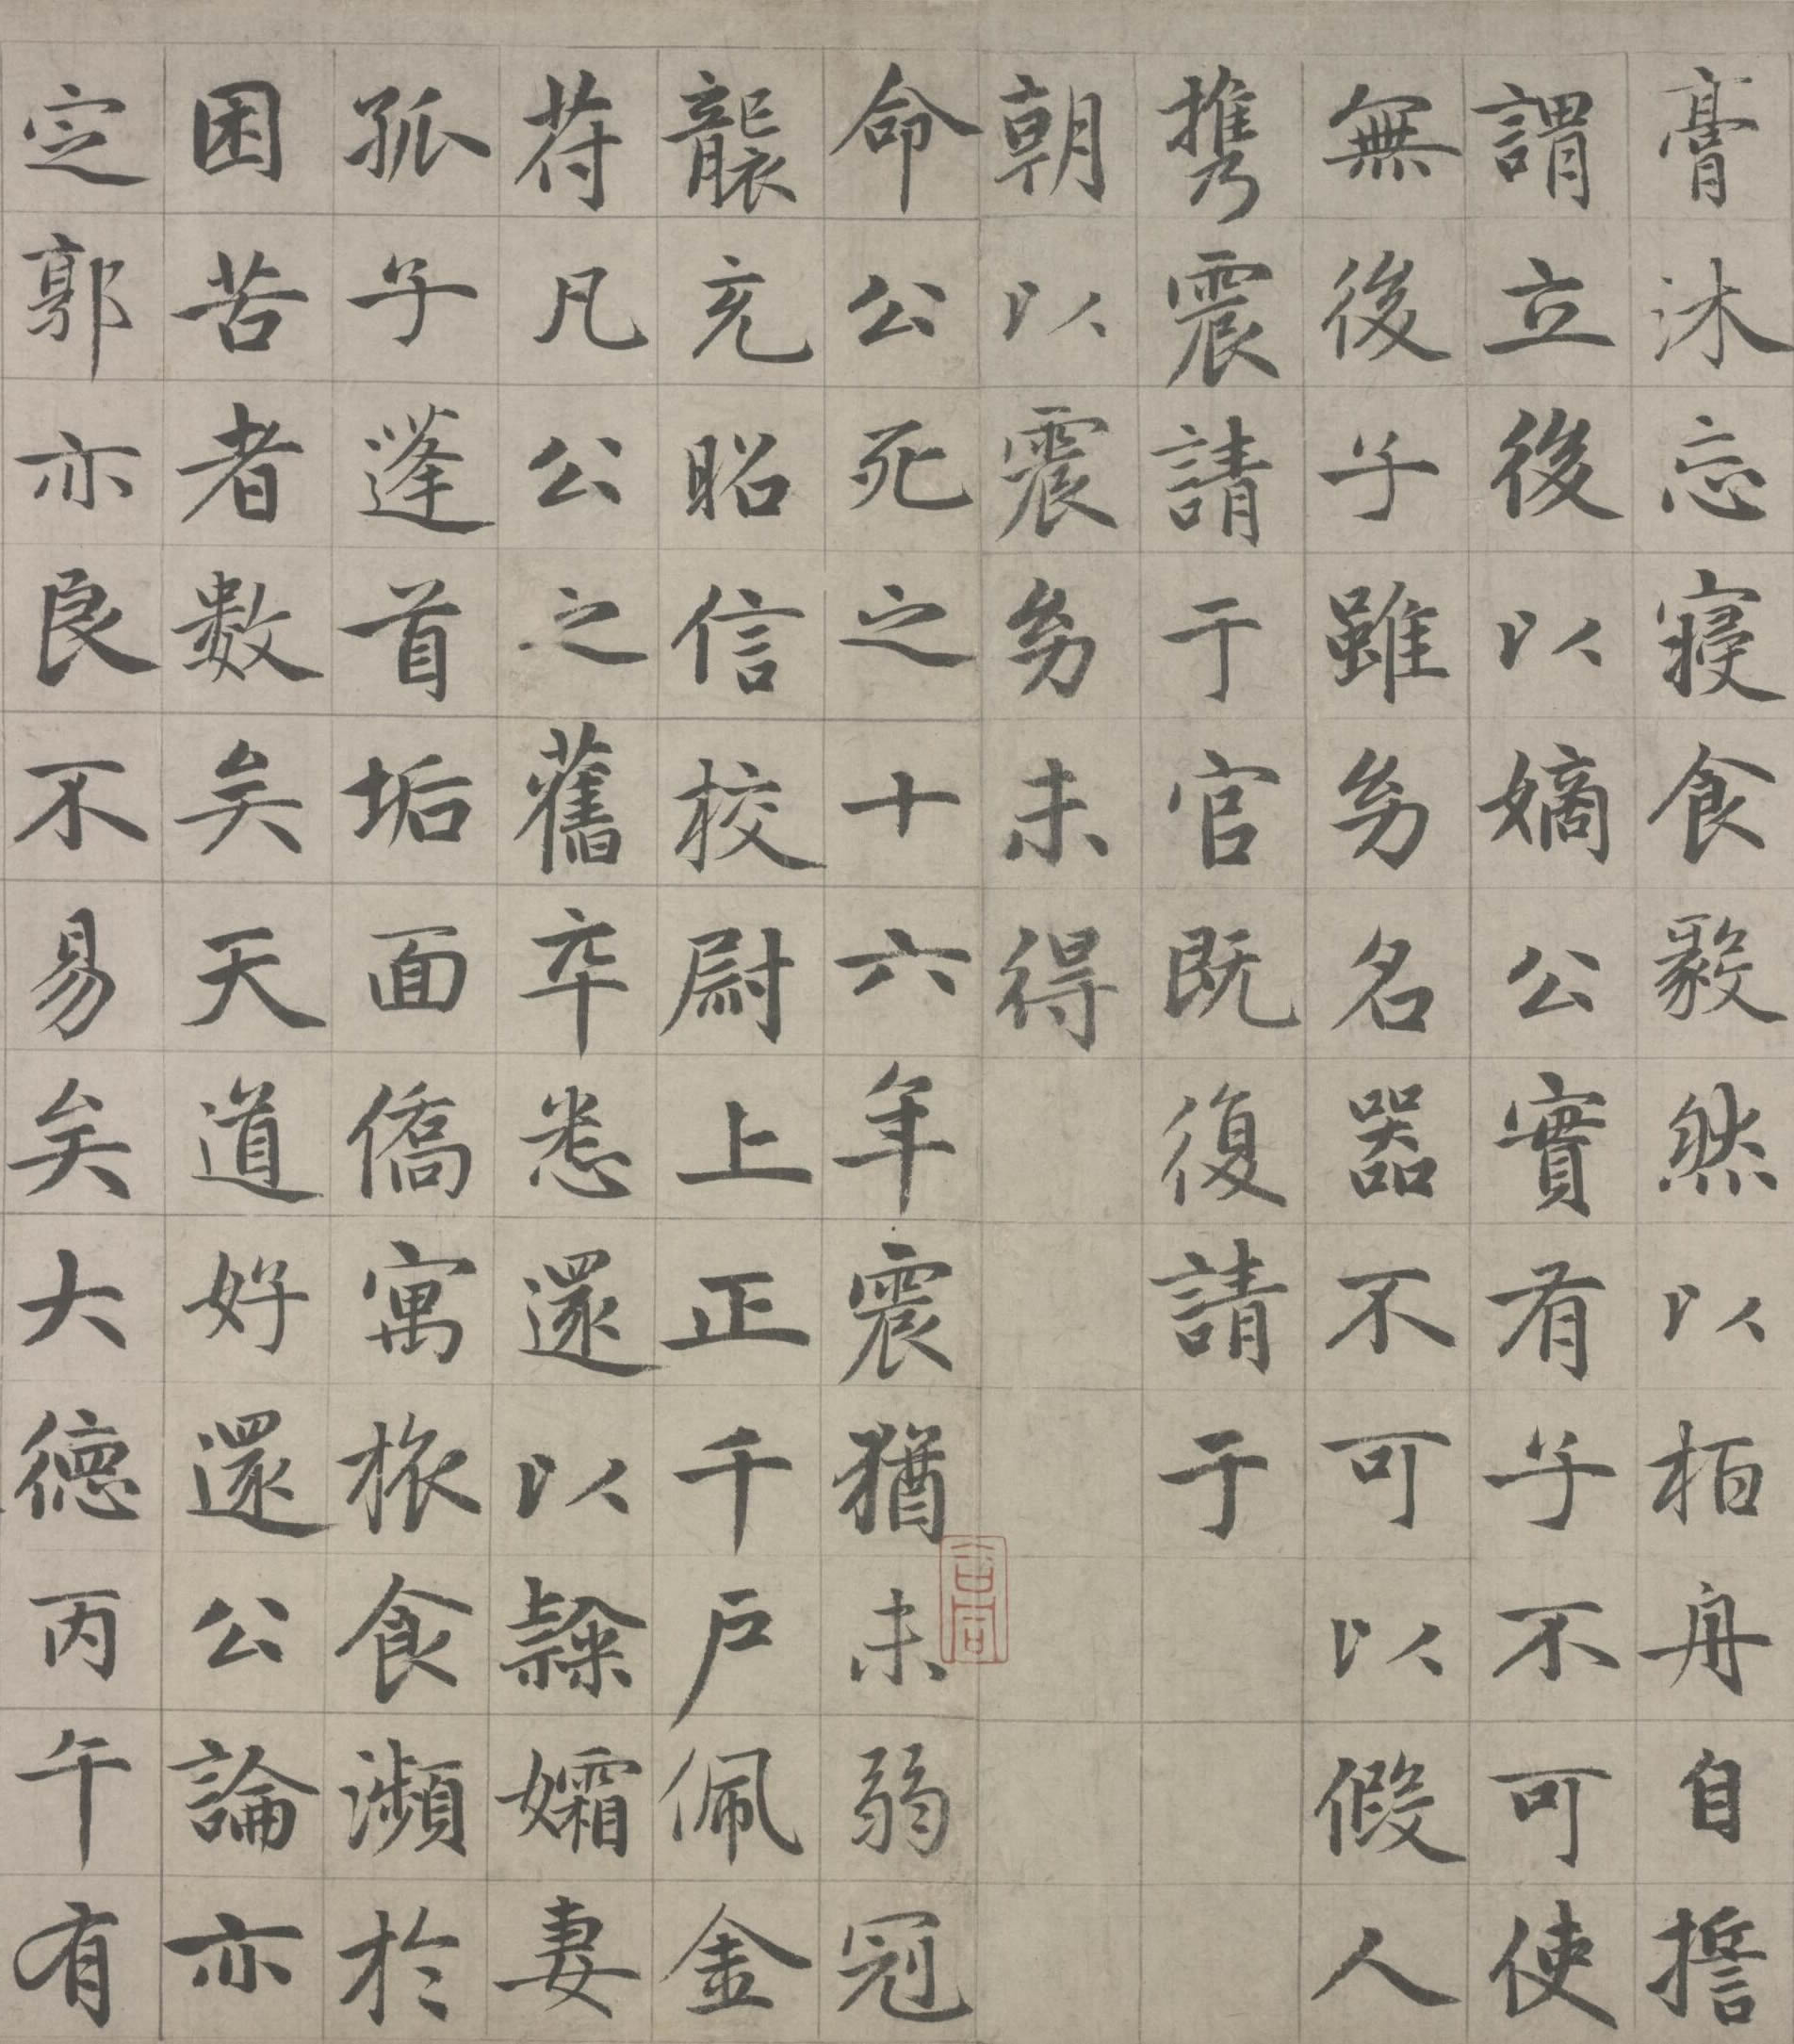 膏沐忘寢食毅然以栢舟自誓
謂立後以嫡公實有子不可使
無後子雖幼名器不可以假人
携震請于官既復請于
朝以震幼未得
命公死之十六年震猶未弱冠
襲充昭信校尉上正千戶佩金
符凡公之舊卒悉還以隸孀妻
孤子蓬首垢面僑寓旅食瀕於
困苦者數矣天道好還公論亦
定郭亦良不易矣大德丙午有